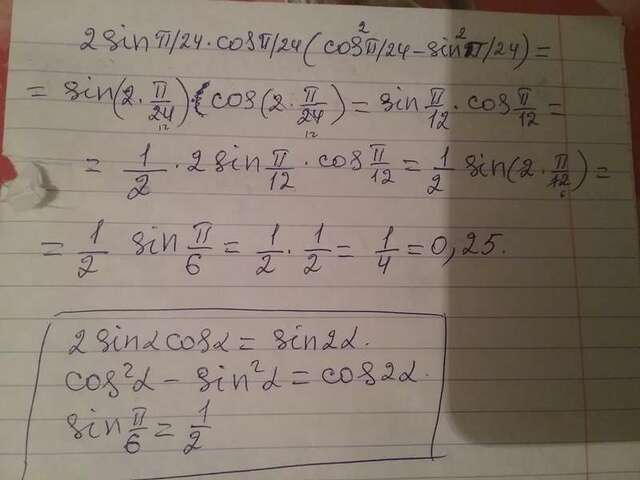 2sin π/24 · cos π/24 (cos²π/24 - sin²π/24) =
= sin(2 · π/24) cos(2 · π/24) = sin π/12 · cos π/12 =
= 1/2 · 2 sin π/12 · cos π/12 = 1/2 sin(2 · π/12) =
= 1/2 sin π/6 = 1/2 · 1/2 = 1/4 = 0,25.
2sinαcosα = sin2α.
cos²α - sin²α = cos2α.
sin π/6 = 1/2